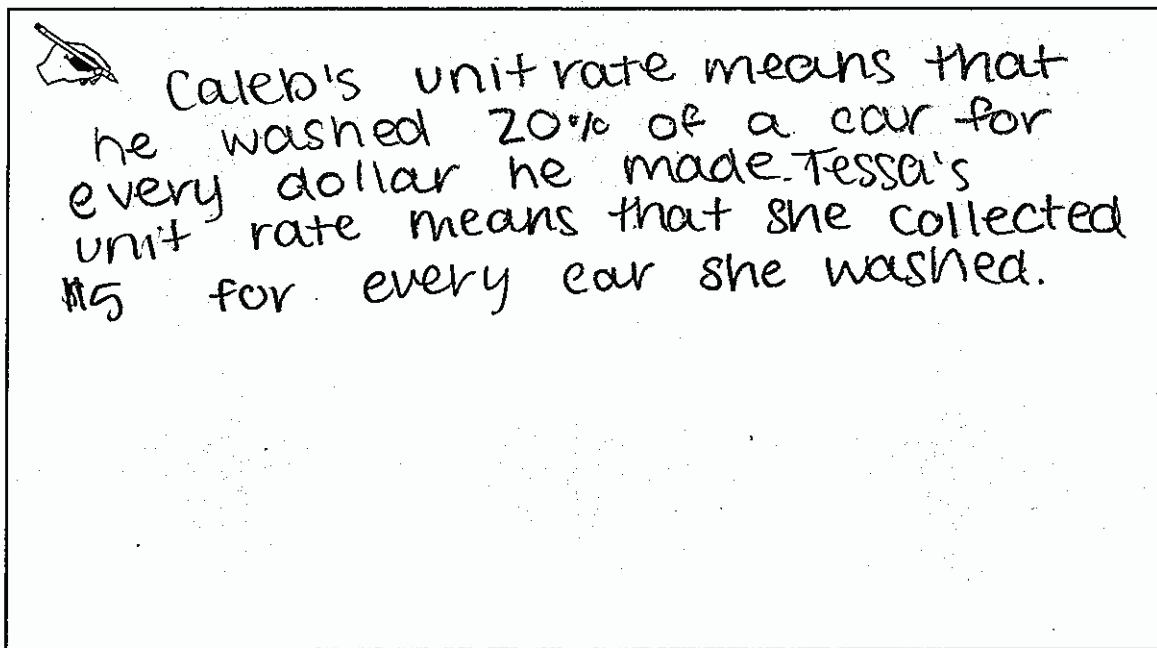 Caleb's unit rate means that
he washed 20% of a car for
every dollar he made. Tessa's
unit rate means that she collected
$5 for every car she washed.